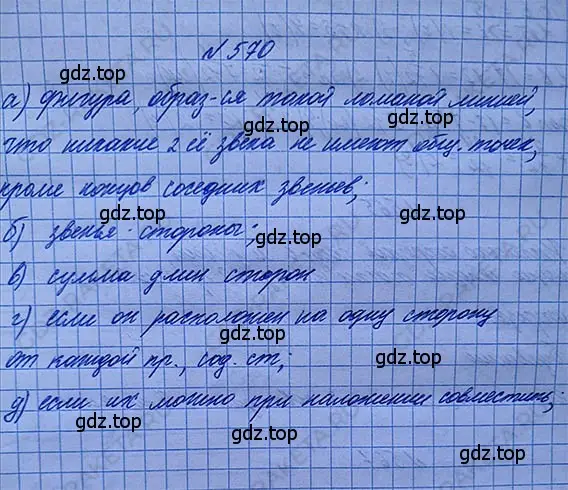 № 570
а) фигура, образ-ся такой ломаной линией,
что никакие 2 её звена не имеют общ. точек,
кроме концов соседних звеньев;
б) звенья - стороны;
в) сумма длин сторон
г) если он расположен на одну сторону
от каждой пр., сод. ст;
д) если их можно при наложении совместить;
gdz.top
gdz.top
gdz.top
gdz.top
gdz.top
gdz.top
gdz.top
gdz.top
gdz.top
gdz.top
gdz.top